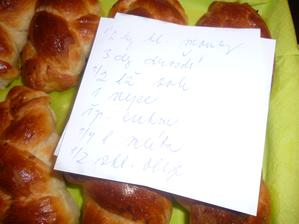 1/2 kg hl. mouky
3 dg droždí
1/2 lž soli
1 vejce
šp. cukru
1/4 l mléka
1/2 skl. oleje